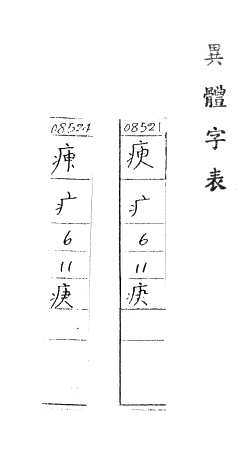 異體字表
08521
疒
6
11
08524
疒
6
11